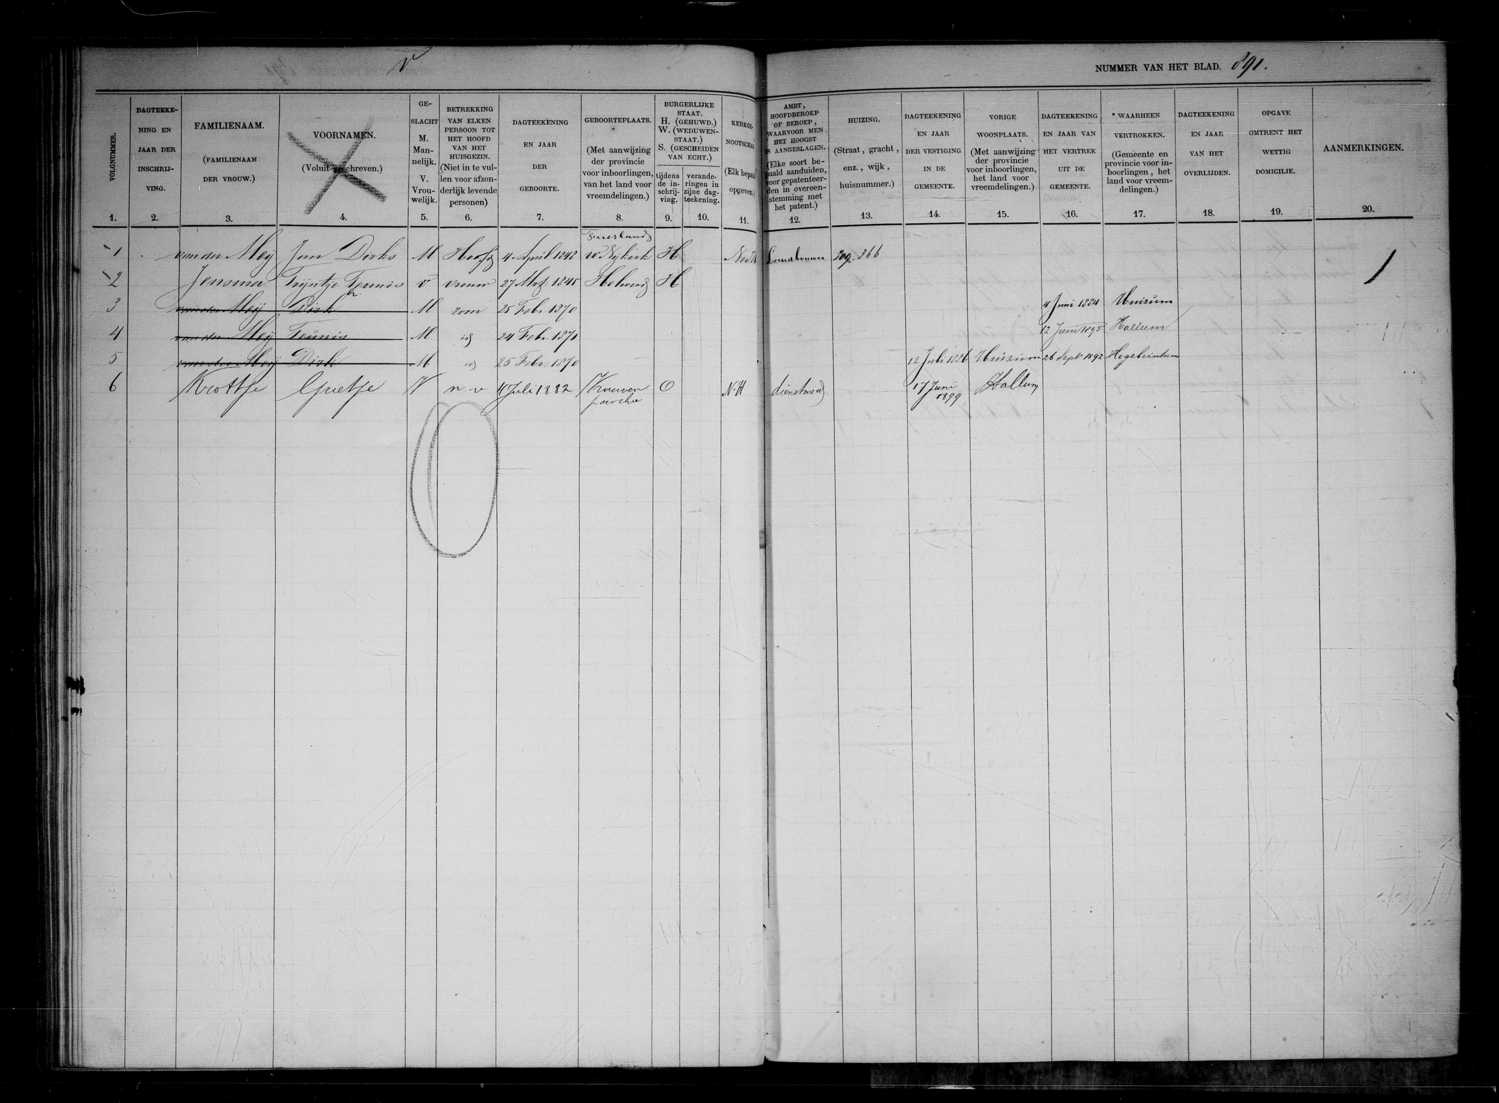 V
NUMMER VAN HET BLAD. 891.
VOLGNUMMER.
1.
DAGTEEKE-
NING EN
JAAR DER
INSCHRIJ-
VING.
2.
FAMILIENAAM.
(FAMILIENAAM
DER VROUW.)
3.
VOORNAMEN.
(Voluit geschreven.)
4.
GE-
SLACHT
M.
Man-
nelijk.
V.
Vrou-
welijk.
5.
BETREKKING
VAN ELKEN
PERSOON TOT
HET HOOFD
VAN HET
HUISGEZIN.
(Niet in te vul-
len voor afzon-
derlijk levende
personen)
6.
DAGTEEKENING
EN JAAR
DER
GEBOORTE.
7.
GEBOORTEPLAATS.
(Met aanwijzing
der provincie
voor inboorlingen,
van het land voor
vreemdelingen.)
8.
BURGERLIJKE
STAAT.
H. (GEHUWD.)
W. (WEDUWEN-
STAAT.)
S. (GESCHEIDEN
VAN ECHT.)
tijdens
de in-
schrij-
ving.
9.
verande-
ringen in
zijne dag-
teekening.
10.
KERKGE-
NOOTSCHAP
(Elk bepaa
opgeven
11.
AMBT,
HOOFDBEROEP
OF BEROEP,
WAARVOOR MEN
HET HOOGST
IS AANGESLAGEN.
(Elke soort be-
paald aanduiden,
voor gepatenteer-
den in overeen-
stemming met
het patent.)
12.
HUIZING.
(Straat, gracht,
enz., wijk,
huisnummer.)
13.
DAGTEEKENING
EN JAAR
DER VESTIGING
IN DE
GEMEENTE.
14.
VORIGE
WOONPLAATS.
(Met aanwijzing
der provincie
voor inboorlingen,
het land voor
vreemdelingen.)
15.
DAGTEEKENING
EN JAAR VAN
HET VERTREK
UIT DE
GEMEENTE.
16.
WAARHEEN
VERTROKKEN.
(Gemeente en
provincie voor in-
boorlingen, het
land voor vreem-
delingen.)
17.
DAGTEEKENING
EN JAAR
VAN HET
OVERLIJDEN.
18.
OPGAVE
OMTRENT HET
WETTIG
DOMICILIE.
19.
AANMERKINGEN.
20.
1 van der Meij Jan Dirks M Hoofd 4 April 1842 Friesland Nijkerk H Ned H 266
2 Jensma Trijntje Teunis v vrouw 27 1845 H
3 van der Meij Dirk M zoon 25 Febr 1870 4 Juni 1884 Huizum
4 van der Meij Teunis M id 24 Febr 1870 12 Juni 1895 Hallum
5 van der Meij Dirk M id 25 Febr 1870 12 Juli 1886 Huizum 26 Sept 1892 Hogebeintum
6 Krottje Grietje V n v 4 Juli 1882 Vrouwen
parochie O N H dienstmeid 17 Juni
1899 Hallum